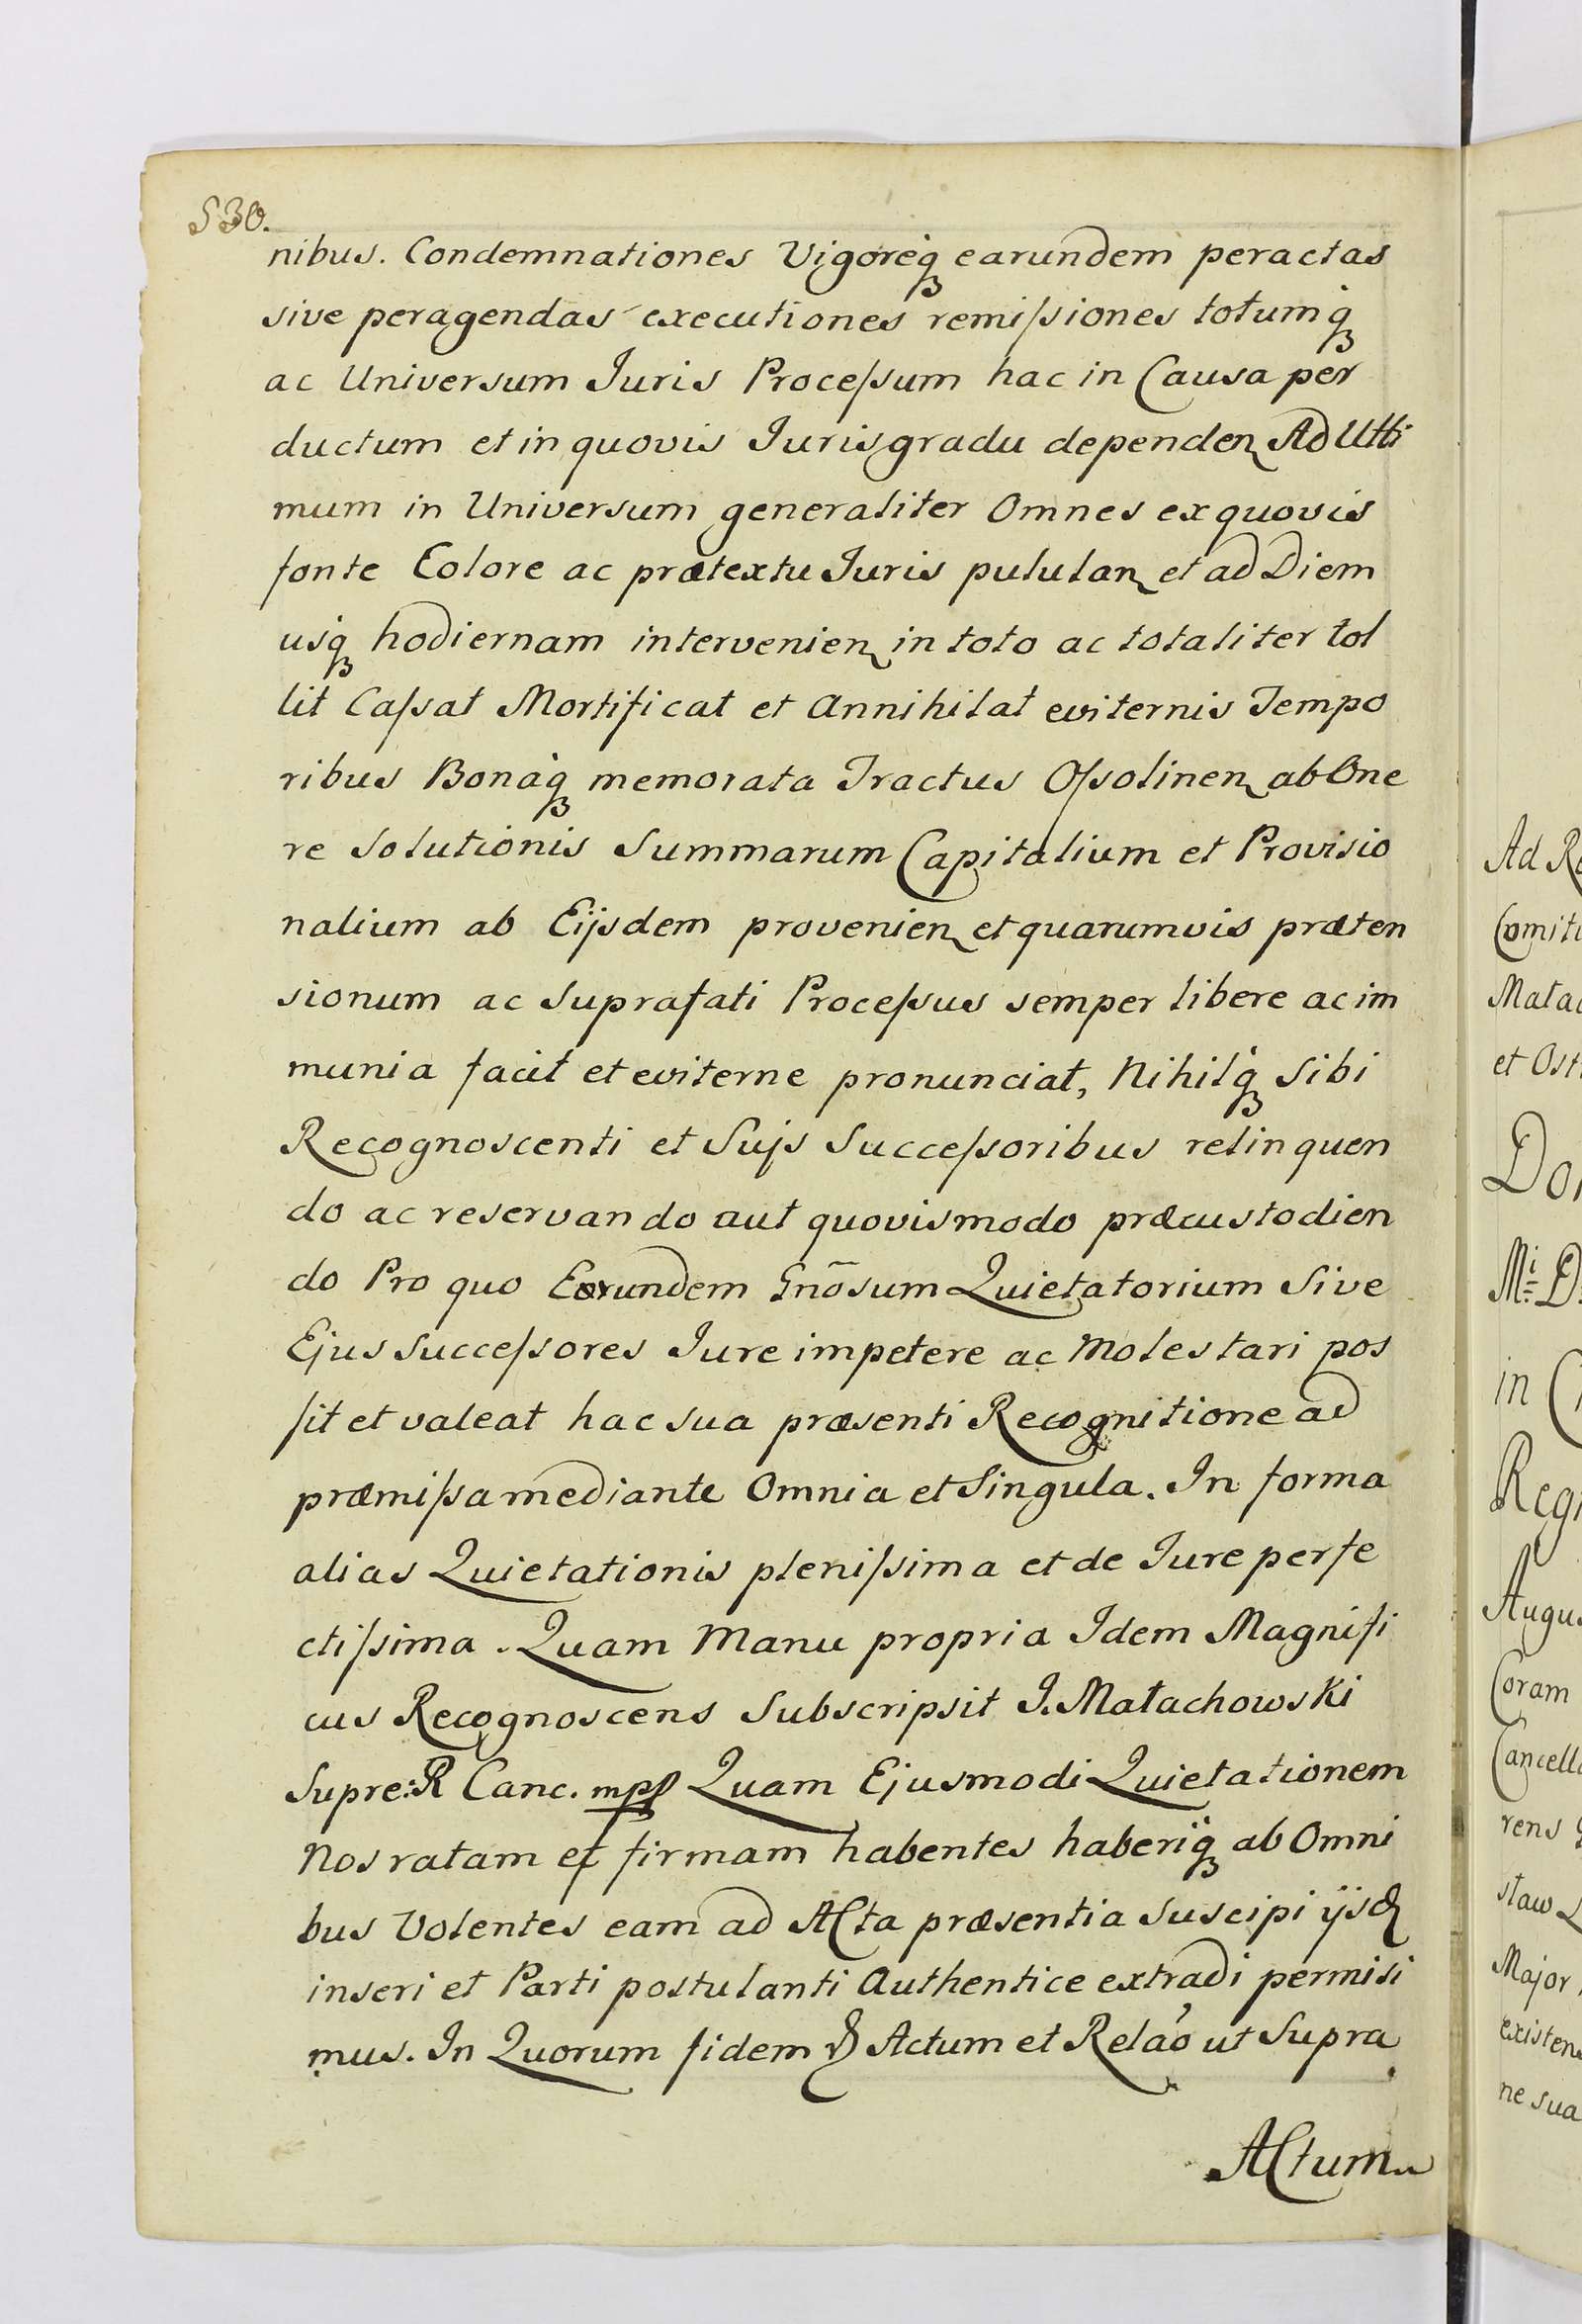 530.
nibus. Condemnationes Vigoreq́ꝫ earundem peractas
sive peragendas executiones remiſsiones totumq́ꝫ
ac Universum Juris Proceſsum hac in Causa per
ductum et in quovis Juris gradu dependen Ad Ulti
mum in Universum generaliter Omnes ex quovis
fonte Colore ac prætextu Juris pululan et ad Diem
usq́ꝫ hodiernam intervenien in toto ac totaliter tol
lit Caſsat Mortificat et Annihilat eviternis Tempo
ribus Bonaq́ꝫ memorata Tractus Oſsolinen ab One
re Solutionis Summarum Capitalium et Provisio
nalium ab Eijsdem provenien et quarumvis præten
sionum ac Suprafati Proceſsus semper libere ac im
munia facit et eviterne pronunciat, Nihilq́ꝫ Sibi
Recognoscenti et Suis Succeſsoribus relinquen
do ac reservando aut quovismodo præcustodien
do Pro quo Eorundem Gnõsum Quietatorium Sive
Ejus Succeſsores Jure impetere ac Molestari pos
ſit et valeat hac sua præsenti Recognitione ad
præmiſsa mediante Omnia et Singula. In forma
alias Quietationis pleniſsima et de Jure perfe
ctiſsima. Quam Manu propria Idem Magnifi
cus Recognoscens Subscripsit J. Małachowski
Supre: R Canc. mpp Quam Ejusmodi Quietationem
Nos ratam et firmam habentes haberiq́ꝫ ab Omni
bus Volentes eam ad Acta præsentia Suscipi ijsd
inseri et Parti postulanti Authentice extradi permisi
mus. In Quorum fidem Actum et Relaõ ut Supra
Actum
Ad R
Comiti
Małac
et Ost
Do
Mi D.
in C
Regn
Augu
Coram
Cancella
rens
sław
Major
existen
ne sua